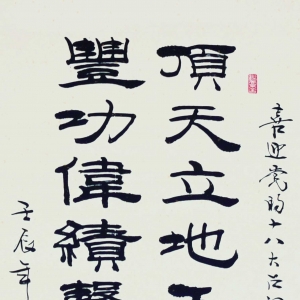 喜迎党的十八大召
頂天立地
豐功偉績
壬辰年